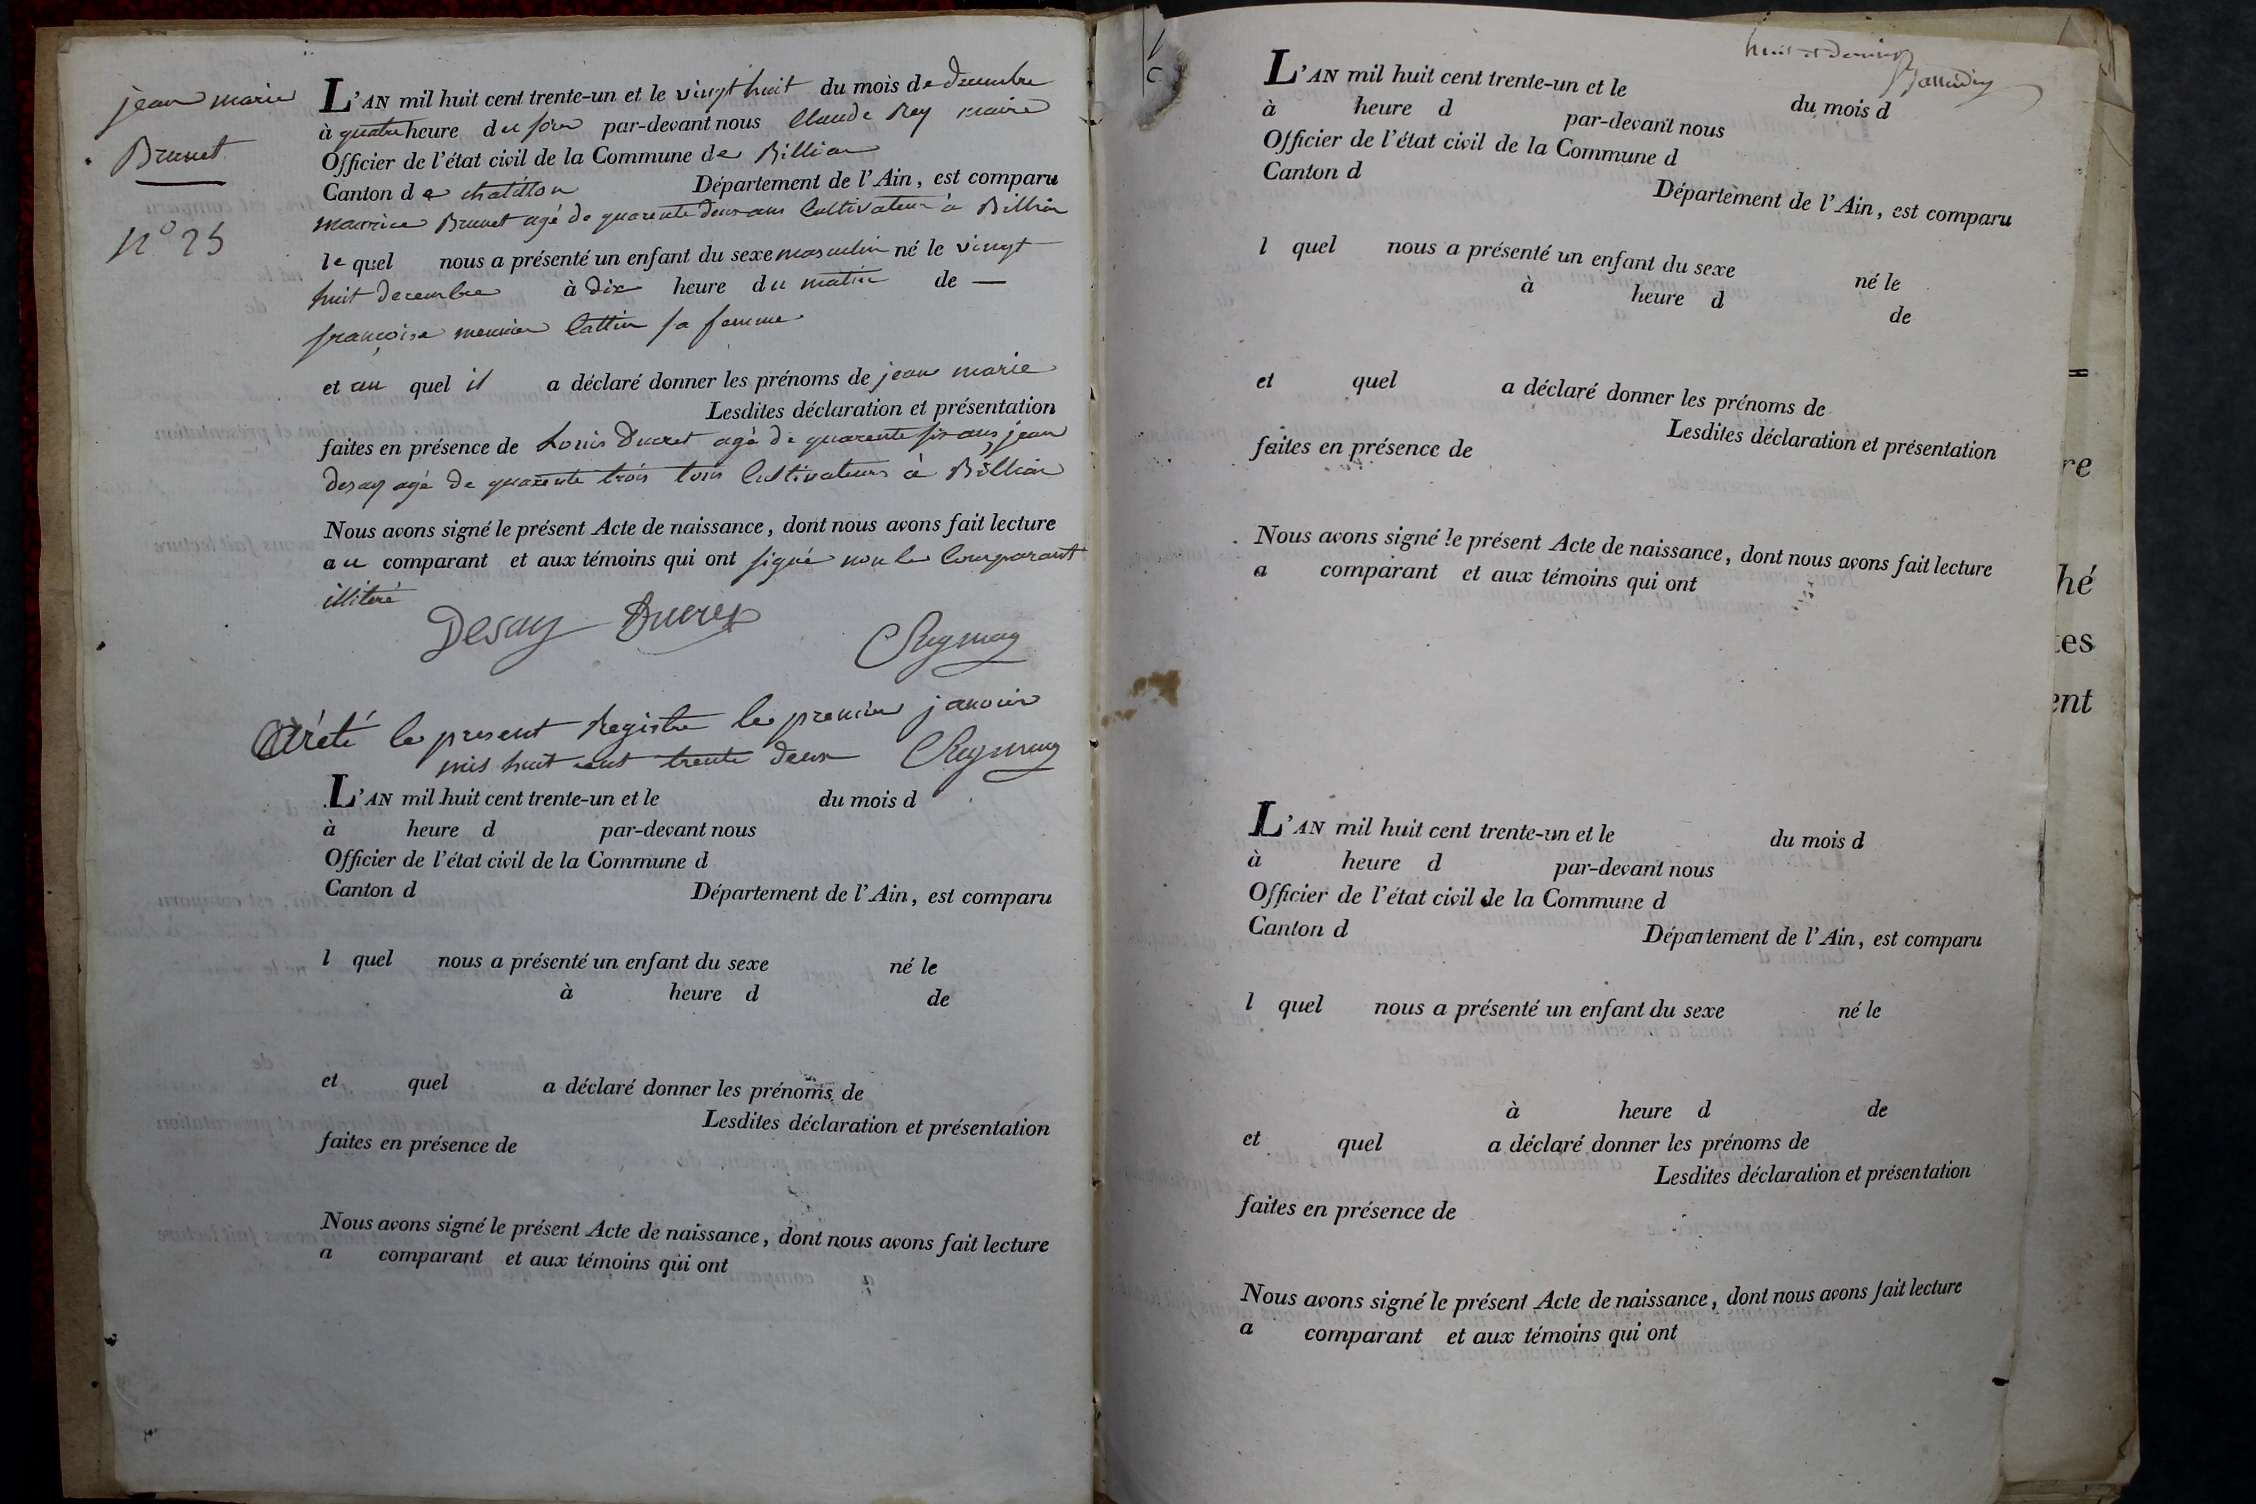 jean marie
Brunet
n° 25
L'AN mil huit cent trente-un et le vingt huit du mois de decembre
à quatre heure du soir par-devant nous Claude Rey maire
Officier de l'état civil de la Commune de Billiat
Canton de chatillon Département de l'Ain, est comparu
maurice Brunet agé de quarente deux ans Cultivateur à Billiat
le quel nous a présenté un enfant du sexe masculin né le vingt
huit decembre à dix heure du matin de —
françoise sa femme
et au quel il a déclaré donner les prénoms de jean marie
Lesdites déclaration et présentation
faites en présence de Louis Ducret agé de quarente six ans, jean
desay agé de quarente trois tous Cultivateurs à Billiat
Nous avons signé le présent Acte de naissance, dont nous avons fait lecture
au comparant et aux témoins qui ont signé non le Comparant
illiteré
Desay Ducret
C Rey
Arété le present Registre le premier janvier
mil huit cent trente deux C Rey
L'AN mil huit cent trente-un et le du mois d
à heure d par-devant nous
Officier de l'état civil de la Commune d
Canton d Département de l'Ain, est comparu
l quel nous a présenté un enfant du sexe né le
à heure d de
et quel a déclaré donner les prénoms de
Lesdites déclaration et présentation
faites en présence de
Nous avons signé le présent Acte de naissance, dont nous avons fait lecture
a comparant et aux témoins qui ont
huit et dernier
L'AN mil huit cent trente-un et le du mois d
à heure d par-devant nous
Officier de l'état civil de la Commune d
Canton d Département de l'Ain, est comparu
l quel nous a présenté un enfant du sexe né le
à heure d de
et quel a déclaré donner les prénoms de
Lesdites déclaration et présentation
faites en présence de
Nous avons signé le présent Acte de naissance, dont nous avons fait lecture
a comparant et aux témoins qui ont
L'AN mil huit cent trente-un et le du mois d
à heure d par-devant nous
Officier de l'état civil de la Commune d
Canton d Département de l'Ain, est comparu
l quel nous a présenté un enfant du sexe né le
à heure d de
et quel a déclaré donner les prénoms de
Lesdites déclaration et présentation
faites en présence de
Nous avons signé le présent Acte de naissance, dont nous avons fait lecture
a comparant et aux témoins qui ont
re
hé
tes
ent